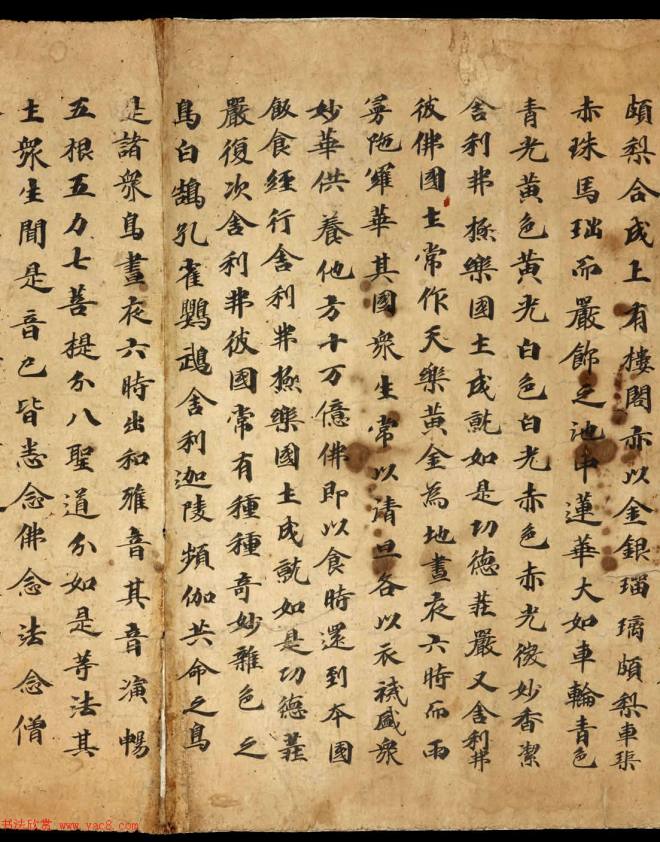 頗梨合成上有樓閣亦以金銀瑠璃頗梨車𤦲
赤珠馬瑙而嚴飾之池中蓮華大如車輪青色
青光黃色黃光白色白光赤色赤光微妙香潔
舍利弗極樂國土成就如是功德莊嚴又舍利弗
彼佛國土常作天樂黃金為地晝夜六時而雨
曼陀羅華其國眾生常以清旦各以衣祴盛眾
妙華供養他方十万億佛即以食時還到本國
飯食經行舍利弗極樂國土成就如是功德莊
嚴復次舍利弗彼國常有種種奇妙雜色之
鳥白鵠孔雀鸚鵡舍利迦陵頻伽共命之鳥
是諸眾鳥晝夜六時出和雅音其音演暢
五根五力七菩提分八聖道分如是等法其
土眾生聞是音已皆悉念佛念法念僧
书法欣赏 www.yac8.com